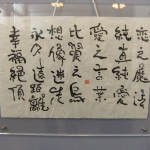 恋之魔法
純純愛
愛之言葉
比翼之鳥
想像迷
永久遠距離
幸福絶頂